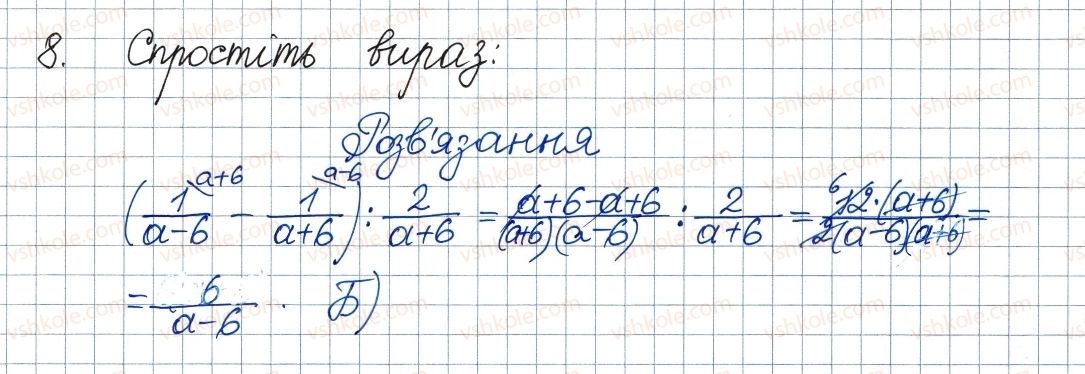 8. Спростіть вираз:
Розв'язання
(1/(a-6) ^(a+6) - 1/(a+6) ^(a-6)) : 2/(a+6) = (a+6-a+6)/((a+6)(a-6)) : 2/(a+6) = (12·(a+6))/(2(a-6)(a+6)) ^6 =
= 6/(a-6) . Б)